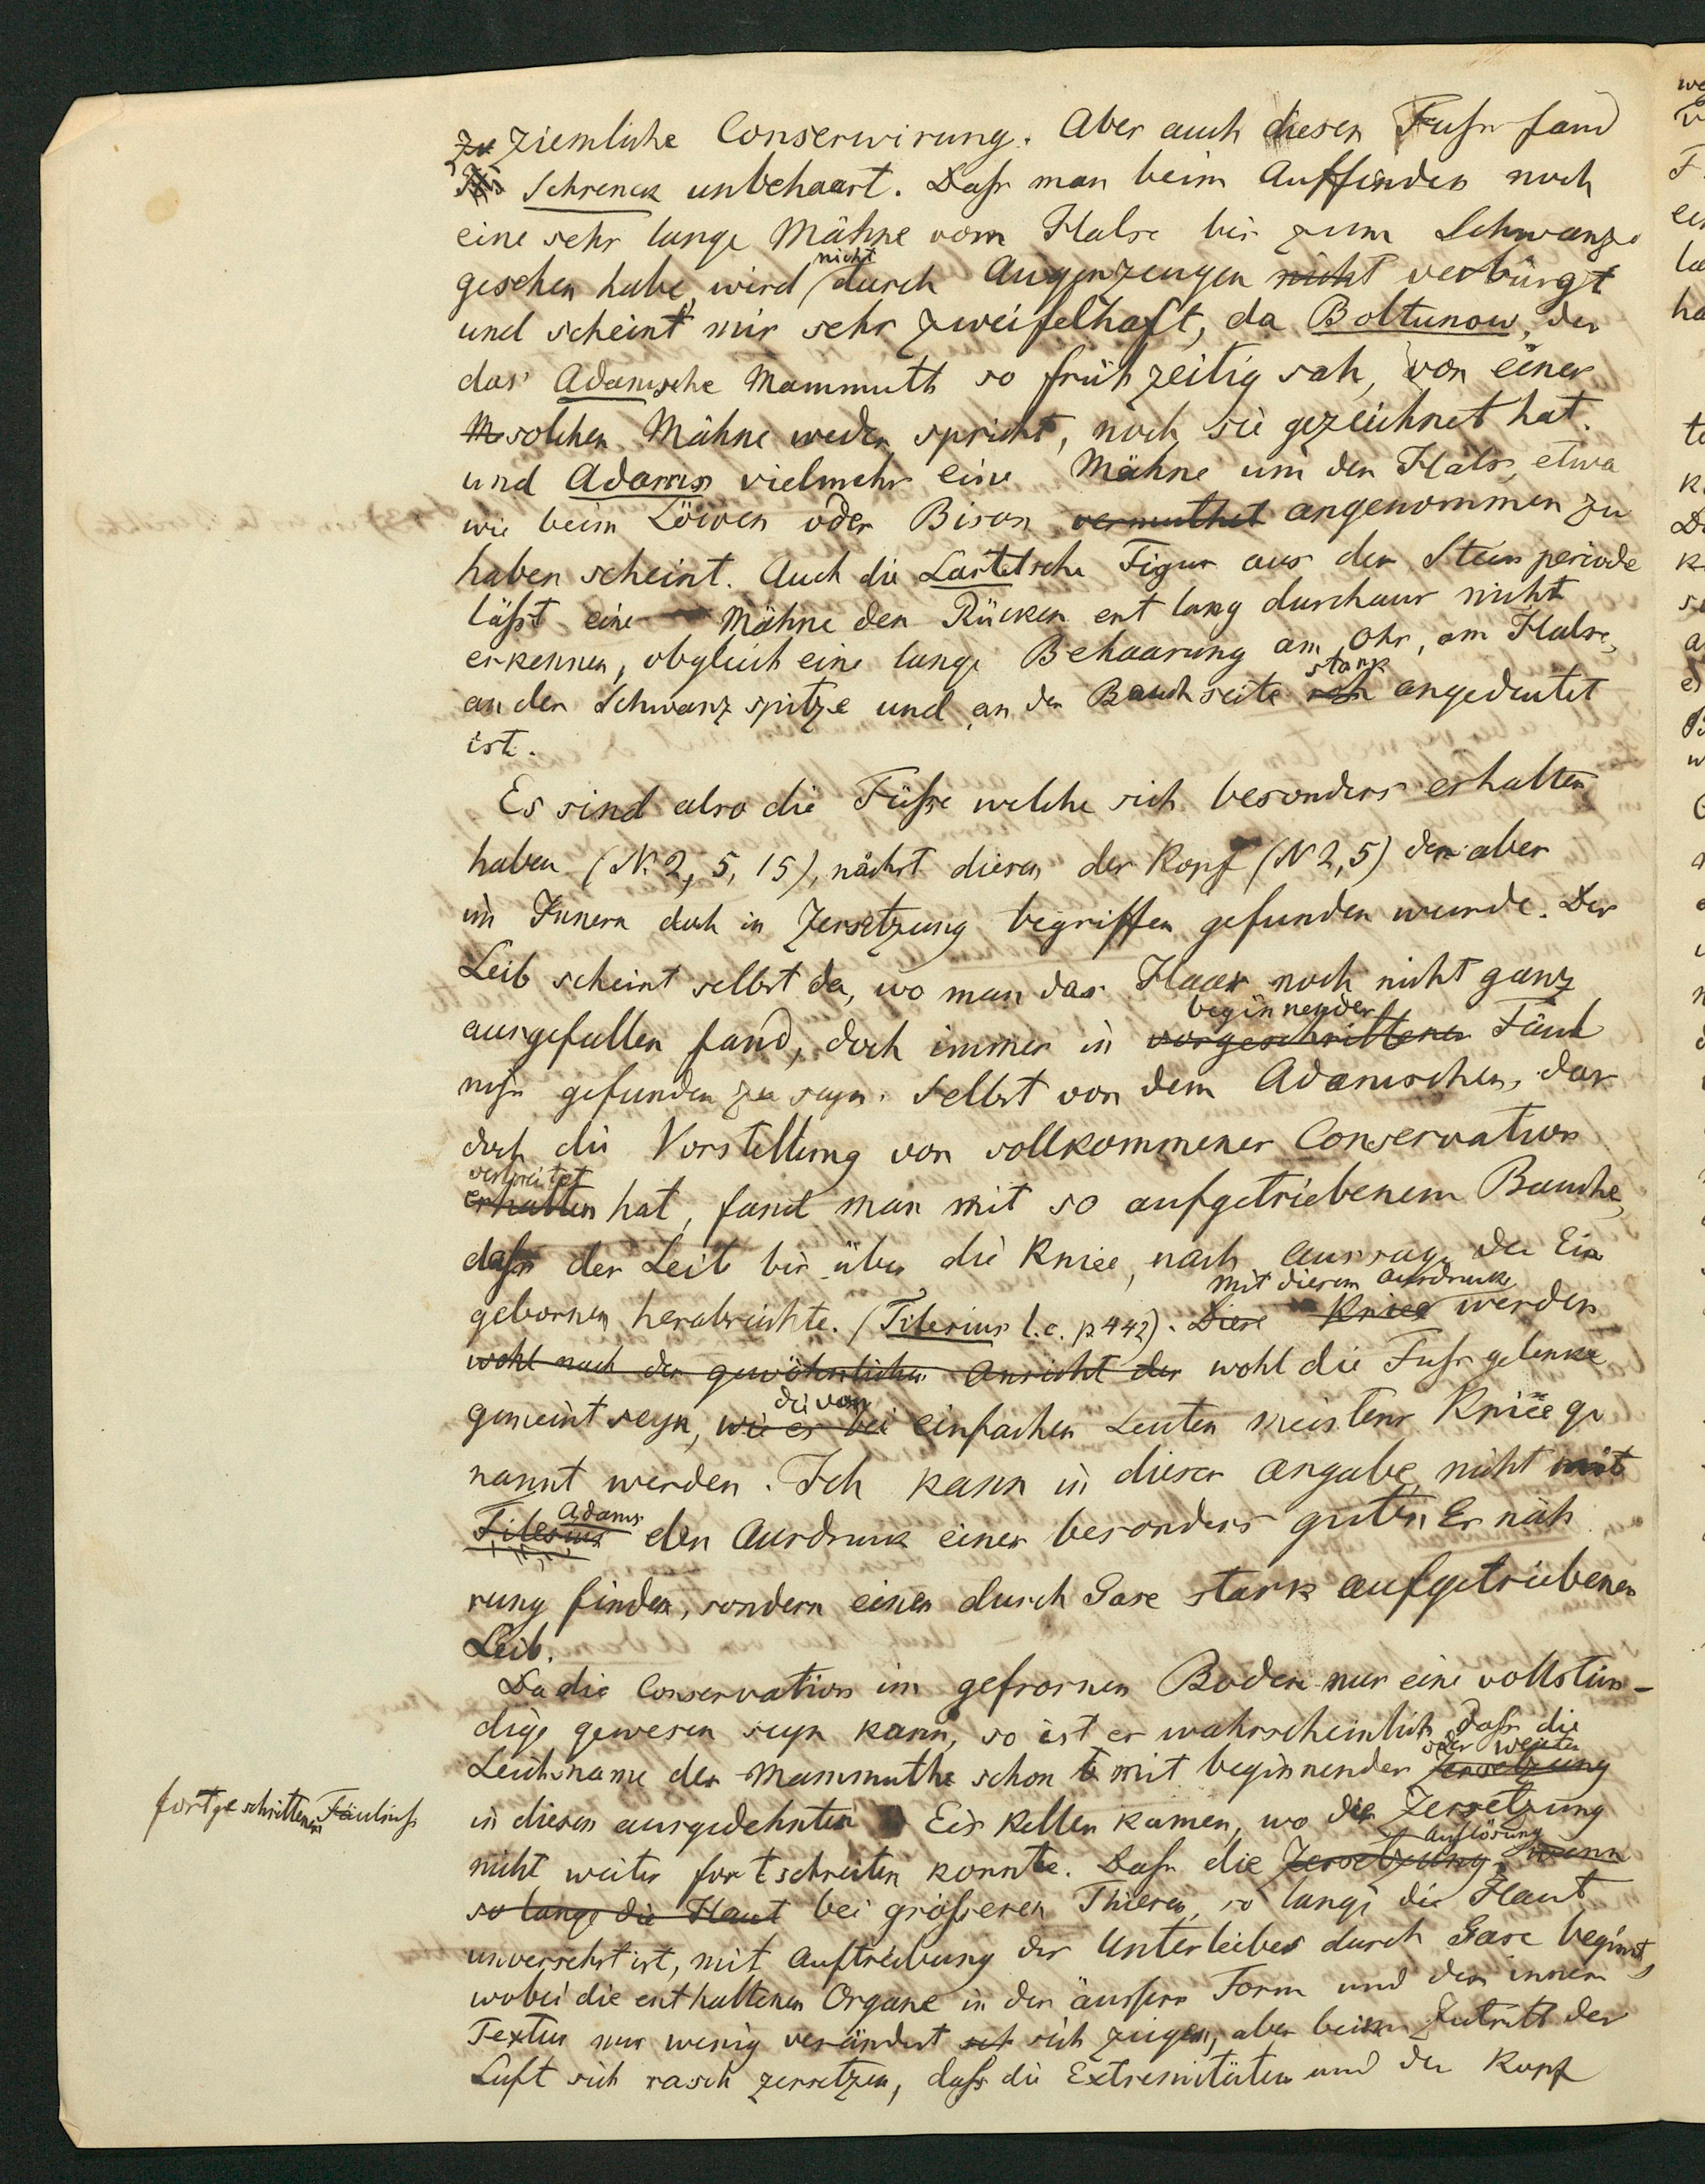 ziemliche Conserwirung. Aber auch diesen Fuſs fand
Schrenck unbehaart. Daſs man beim Auffinden noch
eine sehr lange Mähne vom Halse bis zum Schwanze
gesehen habe, wird nicht durch Augenzeugen nicht verbürgt
und scheint mir sehr zweifelhaft, da Boltunow, der
das Adamsche Mammuth so frühzeitig sah, von einer
solchen Mähne weder spricht, noch sie gezeichnet hat.
und Adams vielmehr eine Mähne um den Hals, etwa
wie beim Löwen oder Bison vermuthet angenommen zu
haben scheint. Auch die Lartetsche Figur aus der Steinperiode
läſst eine Mähne den Rücken entlang durchaus nicht
erkennen, obgleich eine lange Behaarung am Ohr, am Halse,
an der Schwanzspitze und an der Bauchseite stark angedeutet
ist.
Es sind also die Füſse welche sich besonders erhalten
haben (N. 2, 5, 15), nächst diesen der Kopf (N 2, 5) der aber
im Innern doch in Zersetzung begriffen gefunden wurde. Der
Leib scheint selbst da, wo man das Haar noch nicht ganz
beginnender
ausgefallen fand, doch immer in vorgeschrittener Fäul
niſs gefunden zu seyn. Selbst von dem Adamschen, das
doch die Vorstellung von vollkommener Conservation
verbreitet
erhalten hat, fand man mit so aufgetriebenem Bauche,
daſs der Leib bis über die Kniee, nach Aussage der Ein
mit diesem Ausdrucke
gebornen herabreichte. (Tilesius l. c. p 442). Diese Kniee werden
wohl nach der gewöhnlichen Ansicht der wohl die Fuſsgelenke
die von
gemeint seyn, wie es bei einfachen Leuten meistens Kniee ge
nannt werden. Ich kann in dieser Angabe nicht mit
Adams
Tilesius den Ausdruck einer besonders guten Ernäh
rung finden, sondern einen durch Gase stark aufgetriebenen
Leib.
Da die Conservation im gefrornen Boden nur eine vollstän-
dige gewesen seyn kann, so ist es wahrscheinlich, daſs die
oder weiter
Leichname der Mammuthe schon mit beginnender Zersetzung
fortgeschrittener Fäulniſs
in diesen ausgedehnten Eiskeller kamen, wo die Zersetzung
Auflösung
nicht weiter fortschreiten konnte. Daſs die Zersetzung, wenn
so lange die Haut bei gröſseren Thieren, so lange die Haut
unversehrt ist, mit Auftreibung des Unterleibes durch Gase beginnt,
wobei die enthaltenen Organe in der äuſsern Form und der innern
Textur nur wenig verändert sich zeigen, aber beim Zutritt der
Luft sich rasch zersetzen, daſs die Extremitäten und der Kopf